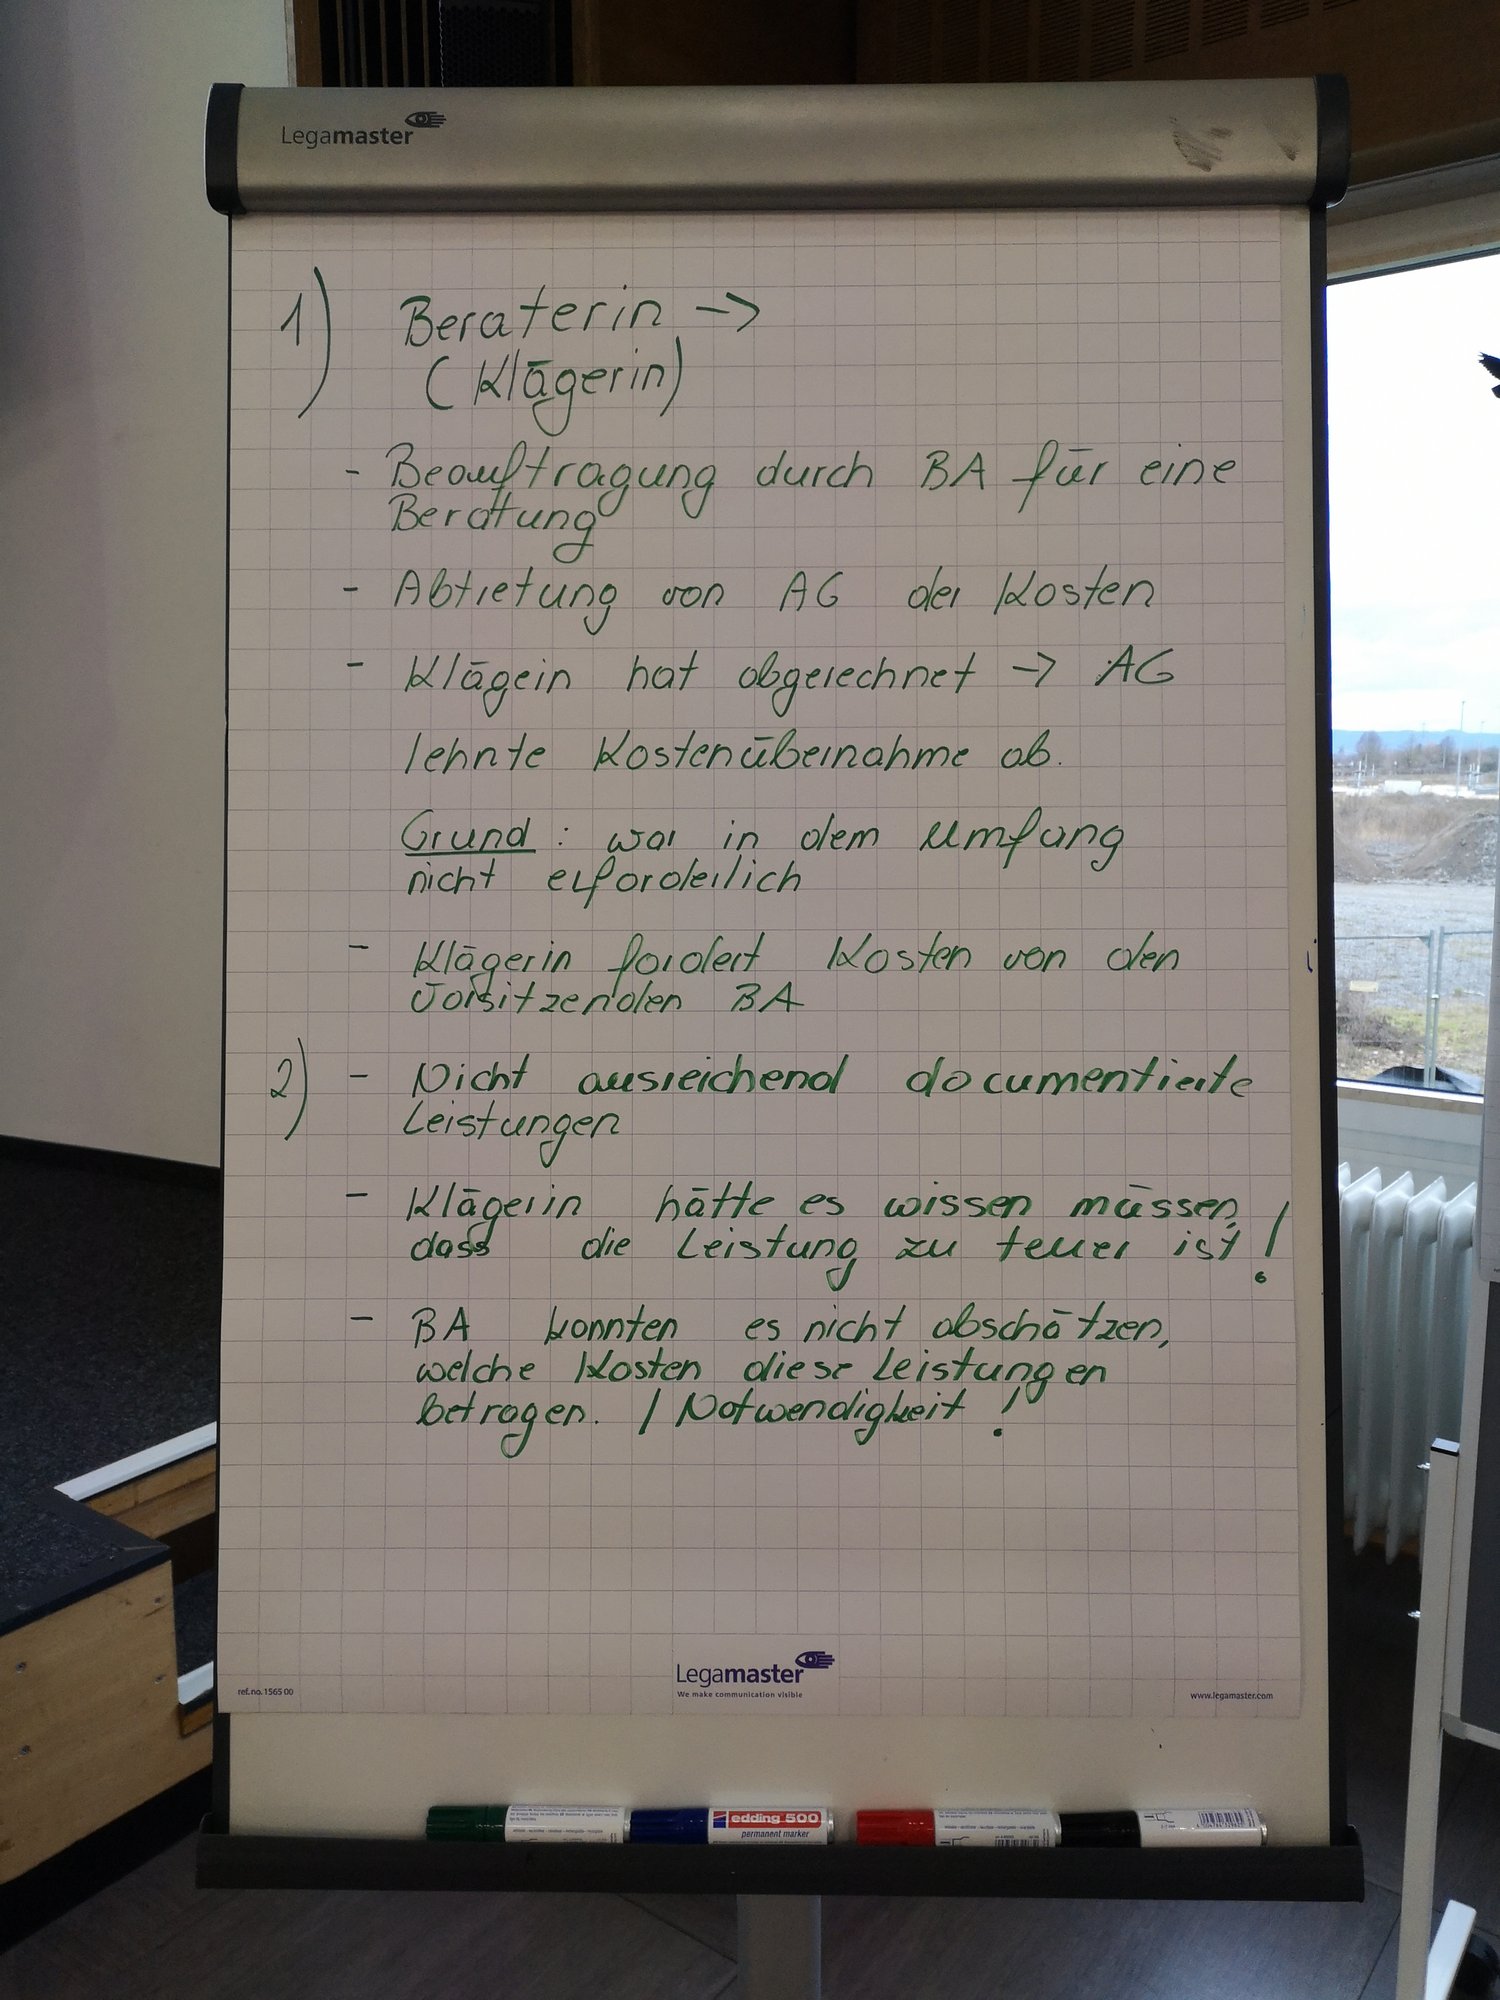 Legamaster
1) Beraterin →
(Klägerin)
- Beauftragung durch BA für eine
Beratung
- Abtretung von AG der Kosten
- Klägein hat abgerechnet → AG
lehnte Kostenübernahme ab.
Grund: war in dem Umfang
nicht erforderlich
- Klägerin fordert Kosten von den
Vorsitzenden BA
2) - Nicht ausreichend documentierte
Leistungen
- Klägerin hätte es wissen müssen,
dass die Leistung zu teuer ist!
- BA konnten es nicht abschätzen,
welche Kosten diese Leistungen
betragen. / Notwendigkeit!
Legamaster
We make communication visible
ref. no. 1565 00
www.legamaster.com
edding 500
permanent marker